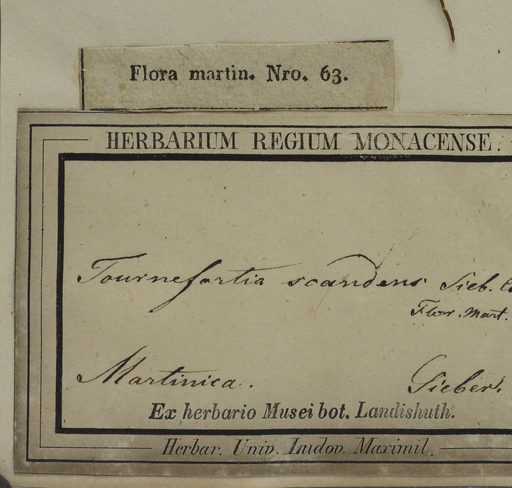 Flora martin. Nro. 63.
HERBARIUM REGIUM MONACENSE.
Tournefortia scandens Sieb.
Flor. Mart.
Martinica. Sieber.
Ex herbario Musei bot. Landishuth.
Herbar. Univ. Ludov. Maximil.